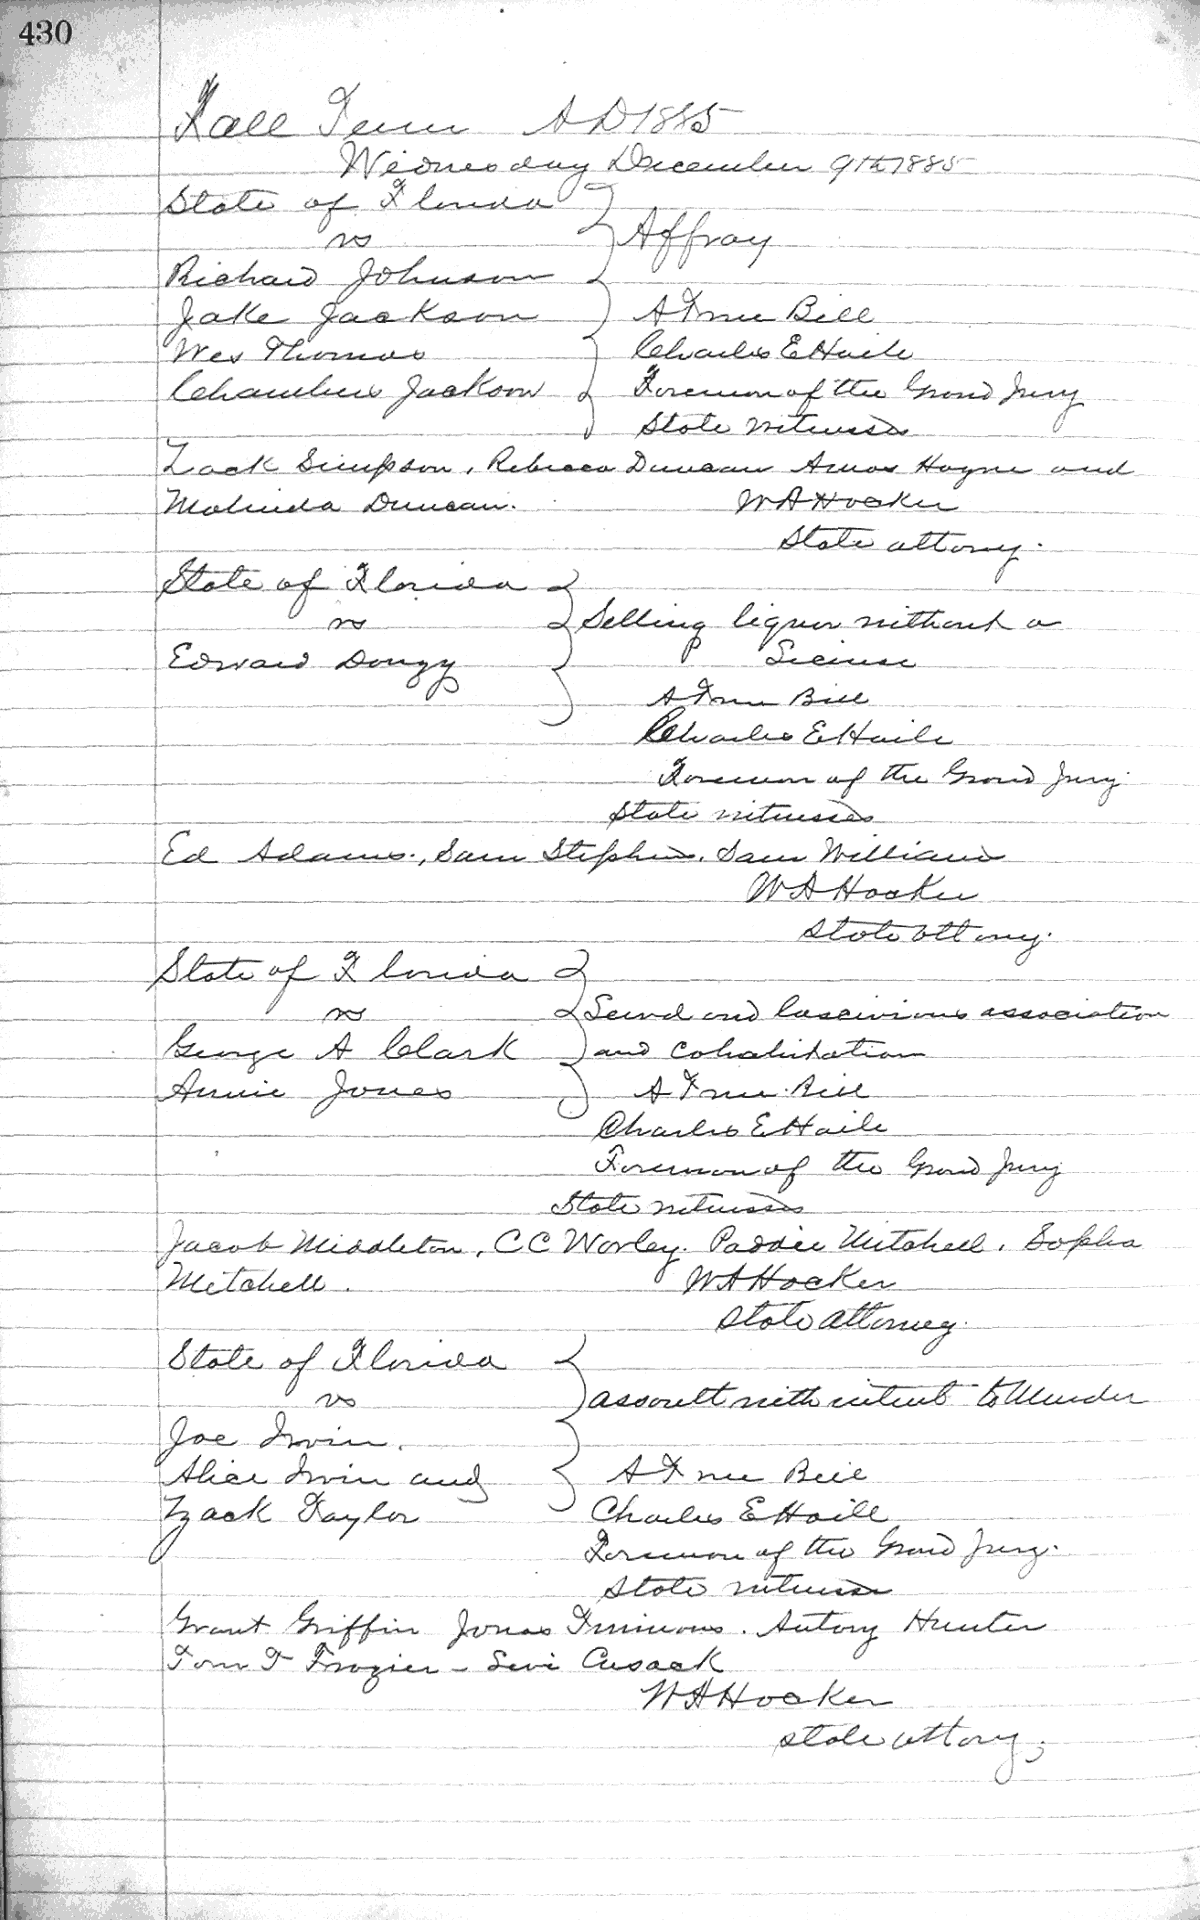 430
Fall Term A D 1885
Wednesday December 9th 1885
State of Florida
vs
Affray
Richard Johnson
Jake Jackson
A True Bill
Wes Thomas
Charles E Haile
Chambers Jackson
Foreman of the Grand Jury
State witnesses
Zack Simpson, Rebecca Duncan Amos Hayne and
Malinda Duncan.
W A Hocker
State attorny.
State of Florida
vs
Selling liquor without a
License
Edward
A True Bill
Charles E Haile
Foreman of the Grand Jury
State witnesses
Ed Adams., Sam Stephens. Sam Williams
W A Hocker
State attorny.
State of Florida
vs
Lewd and lascivious association
George A Clark
and cohabitation
Annie Jones
A True Bill
Charles E Haile
Foreman of the Grand Jury
State witnesses
Jacob Middleton, C C Worley. Paddie Mitchell, Sopha
Mitchell.
W A Hocker
State attorney.
State of Florida
vs
assault with intent to Murder
Joe Irvin.
Alice Irvin and
A True Bill
Zack Taylor
Charles E Haile
Foreman of the Grand Jury.
State witnesses
Grant Griffin Jonas Timmons. Antony Hunter
Tom T Frazier - Levi Cusack
W A Hocker
State attorny,